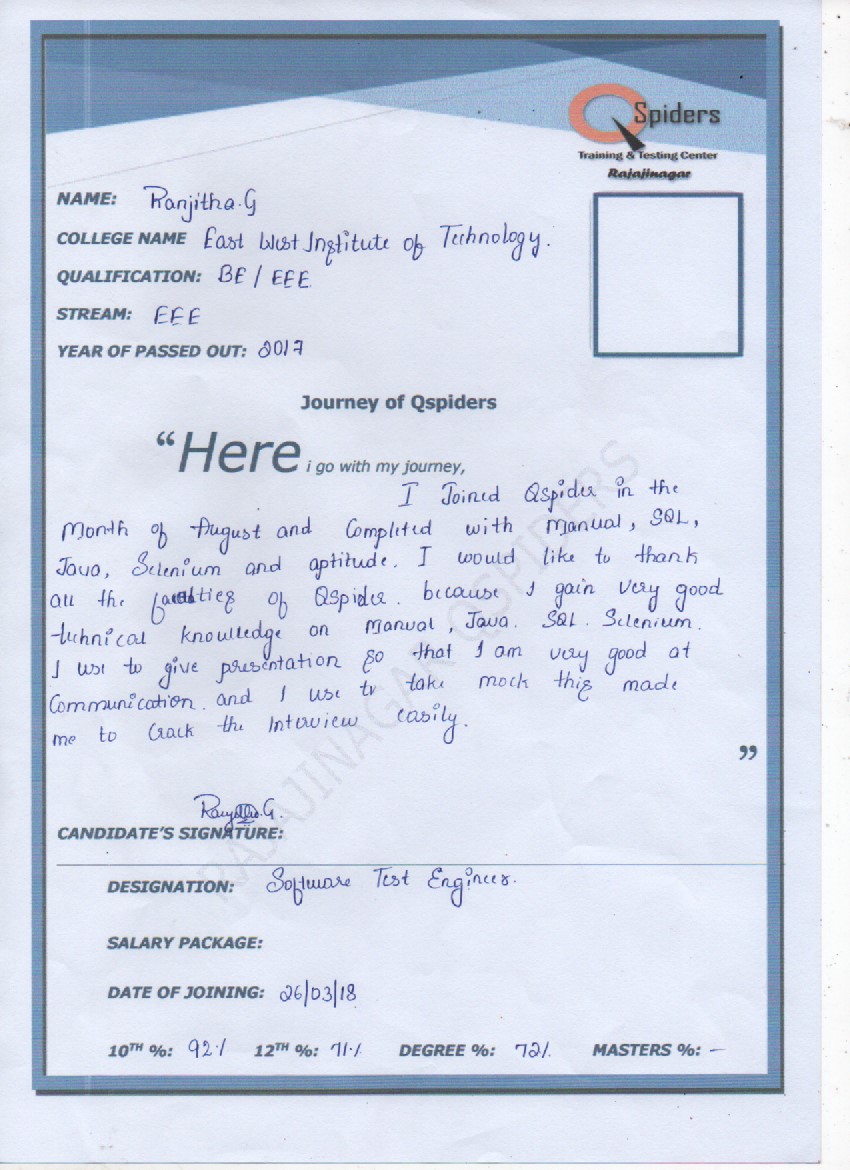 Spiders
Training & Testing Center
Rajajinagar
NAME: Ranjitha.G
COLLEGE NAME East West Institute of Technology.
QUALIFICATION: BE / EEE
STREAM: EEE
YEAR OF PASSED OUT: 2017
Journey of Qspiders
“Here i go with my journey,
I Joined Qspider in the
Month of August and Completed with Manual, SQL,
Java, Selenium and aptitude. I would like to thank
all the faculties of Qspider. because I gain very good
technical knowledge on Manual, Java. SQL. Selenium.
I use to give presentation so that I am very good at
Communication. and I use to take mock this made
me to Crack the Interview easily.
”
Ranjitha.G.
CANDIDATE’S SIGNATURE:
DESIGNATION: Software Test Engineer.
SALARY PACKAGE:
DATE OF JOINING: 26/03/18
10TH %: 92% 12TH %: 71% DEGREE %: 72% MASTERS %: -
RAJAJINAGAR QSPIDERS